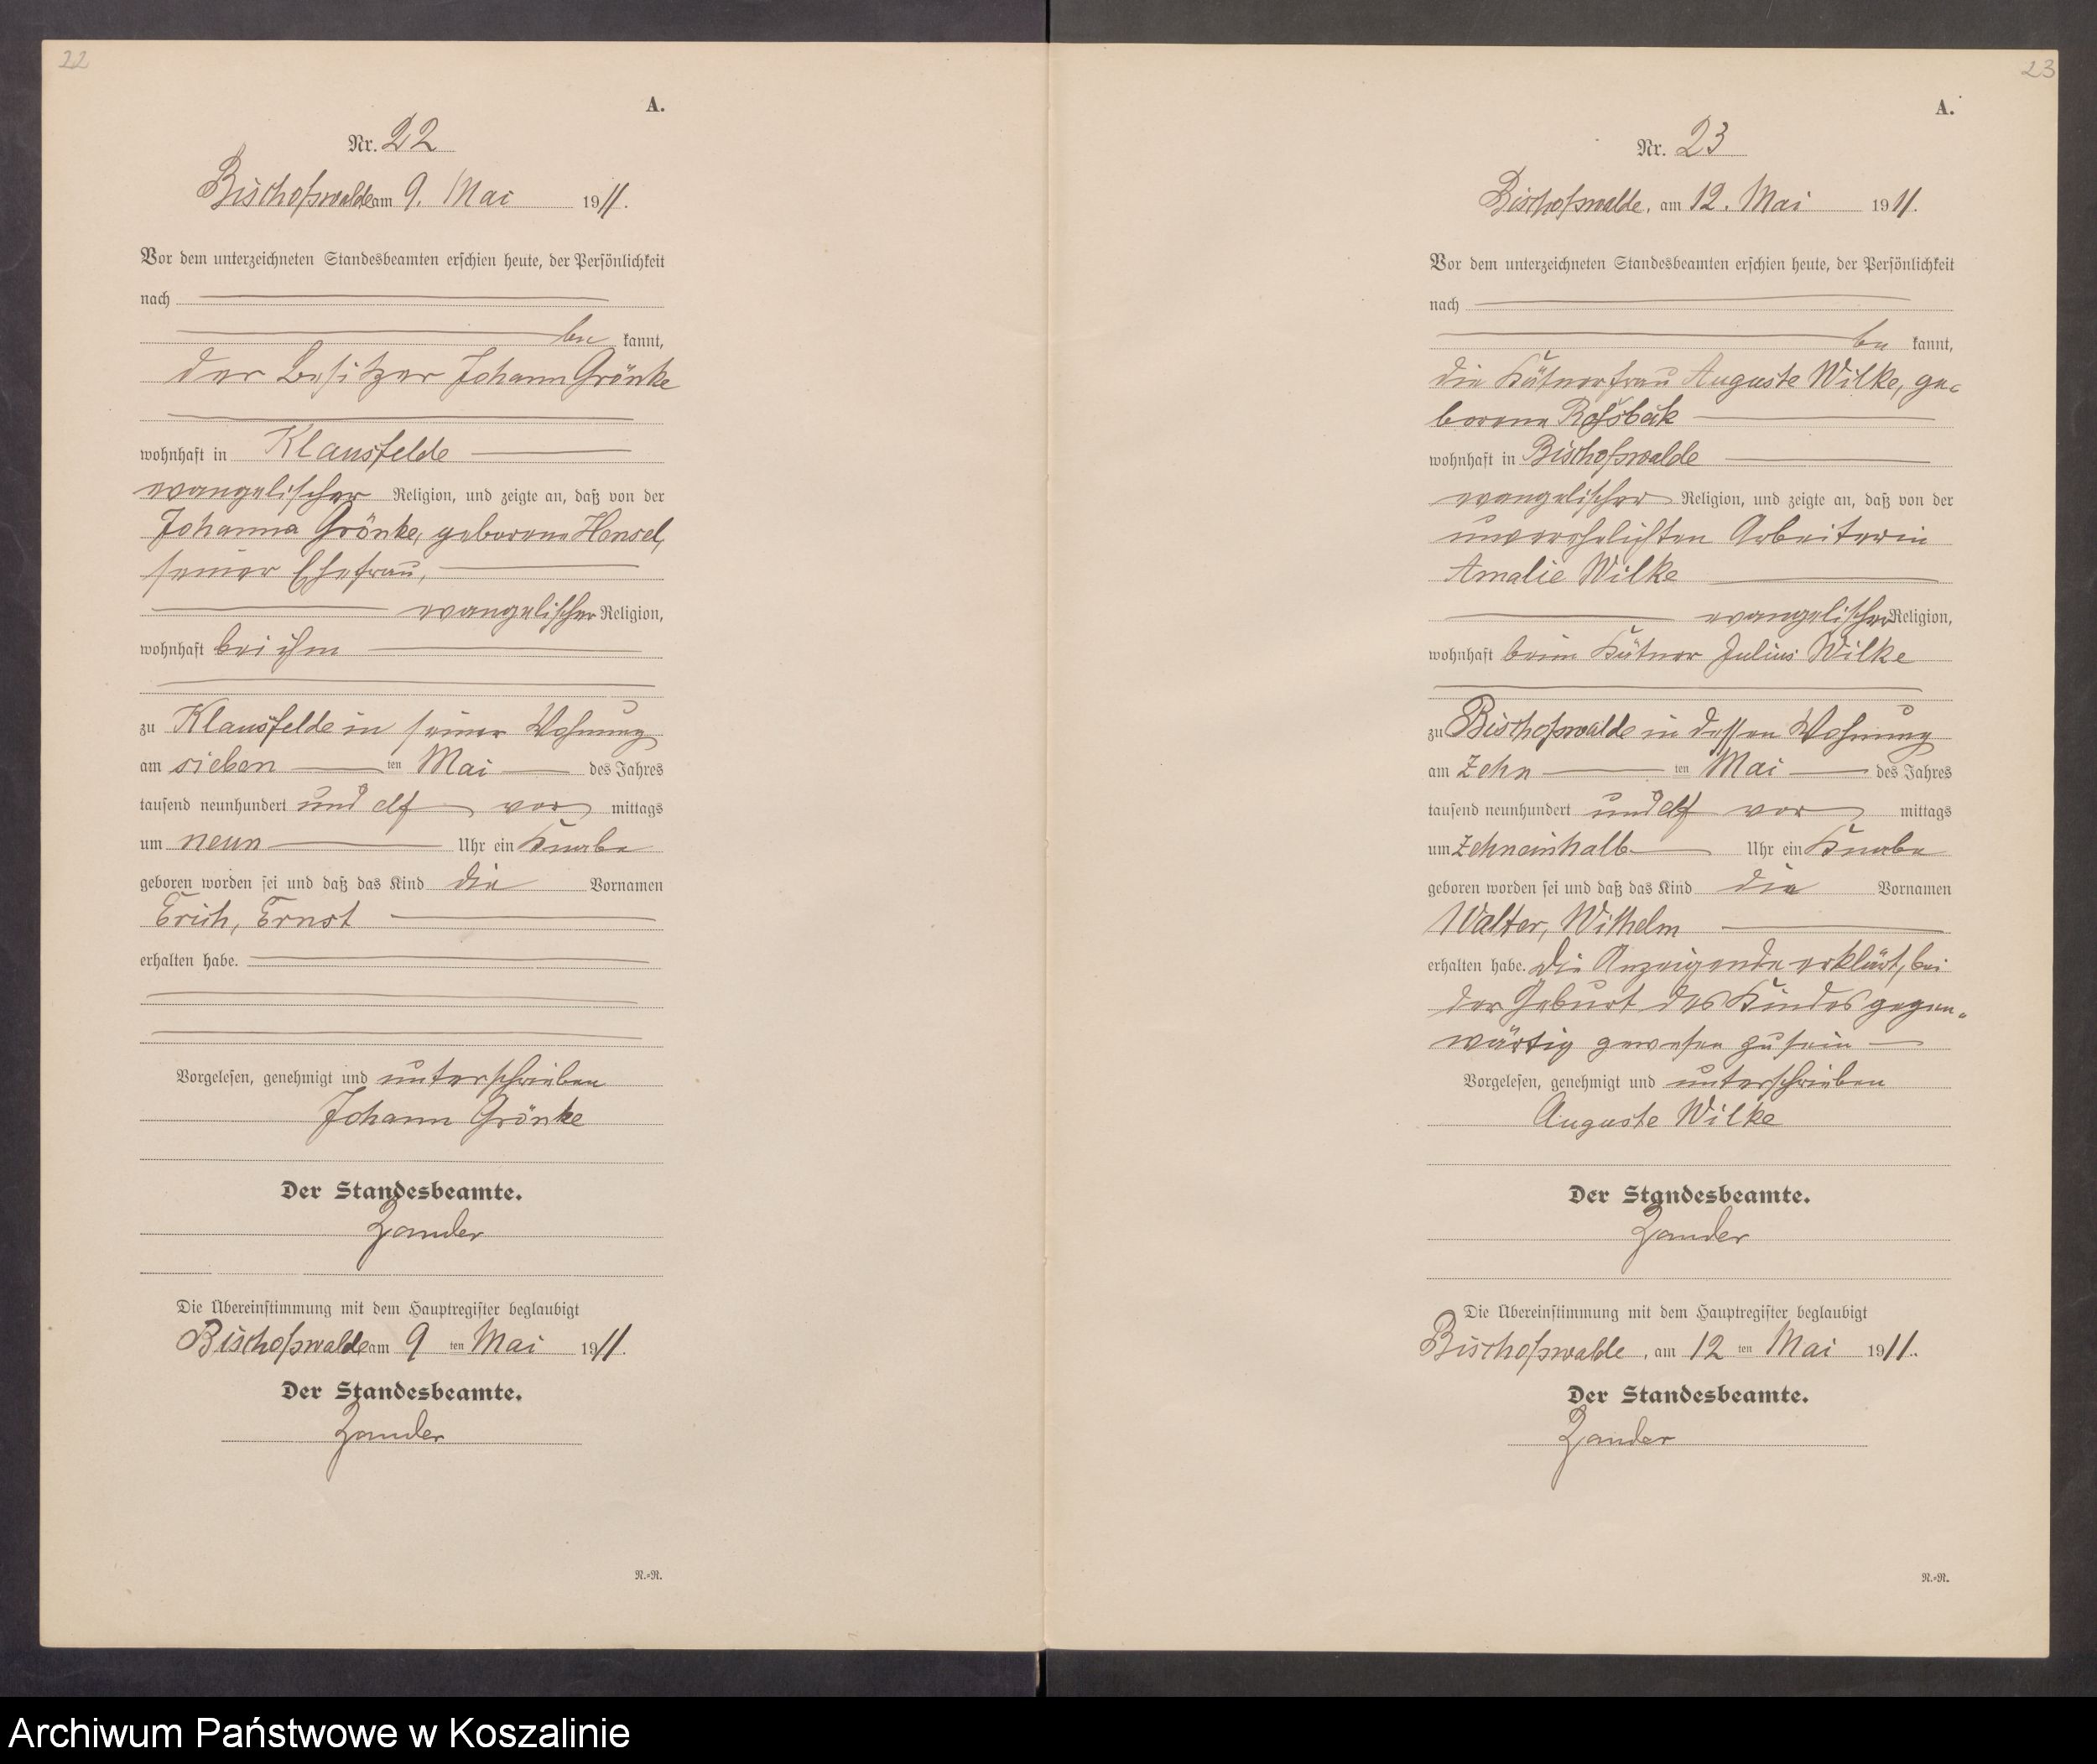 22
A.
Nr. 22
Bischofswalde am 9. Mai 1911.
Vor dem unterzeichneten Standesbeamten erschien heute, der Persönlichkeit
nach
be kannt,
der Besitzer Johann Grönke
wohnhaft in Klausfelde
evangelischer Religion, und zeigte an, daß von der
Johanna Grönke, geborene Hensel,
seiner Ehefrau,
evangelischer Religion,
wohnhaft bei ihm
zu Klausfelde in seiner Wohnung
am sieben ten Mai des Jahres
tausend neunhundert und elf vor mittags
um neun Uhr ein Knabe
geboren worden sei und daß das Kind die Vornamen
Erich, Ernst
erhalten habe.
Vorgelesen, genehmigt und unterschrieben
Johann Grönke
Der Standesbeamte.
Zander
Die Übereinstimmung mit dem Hauptregister beglaubigt
Bischofswalde am 9 ten Mai 1911.
Der Standesbeamte.
Zander
R.=R.
23
A.
Nr. 23
Bischofswalde, am 12. Mai 1911.
Vor dem unterzeichneten Standesbeamten erschien heute, der Persönlichkeit
nach
be kannt,
die Kätnerfrau Auguste Wilke, ge-
borene Roßbäk
wohnhaft in Bischofswalde
evangelischer Religion, und zeigte an, daß von der
unverehelichten Arbeiterin
Amalie Wilke
evangelischer Religion,
wohnhaft beim Kätner Julius Wilke
zu Bischofswalde in dessen Wohnung
am zehn ten Mai des Jahres
tausend neunhundert und elf vor mittags
um zehneinhalb Uhr ein Knabe
geboren worden sei und daß das Kind die Vornamen
Walter, Wilhelm
erhalten habe. Die Anzeigende erklärt, bei
der Geburt des Kindes gegen-
wärtig gewesen zu sein
Vorgelesen, genehmigt und unterschrieben
Auguste Wilke
Der Standesbeamte.
Zander
Die Übereinstimmung mit dem Hauptregister beglaubigt
Bischofswalde, am 12 ten Mai 1911.
Der Standesbeamte.
Zander
R.=R.
Archiwum Państwowe w Koszalinie